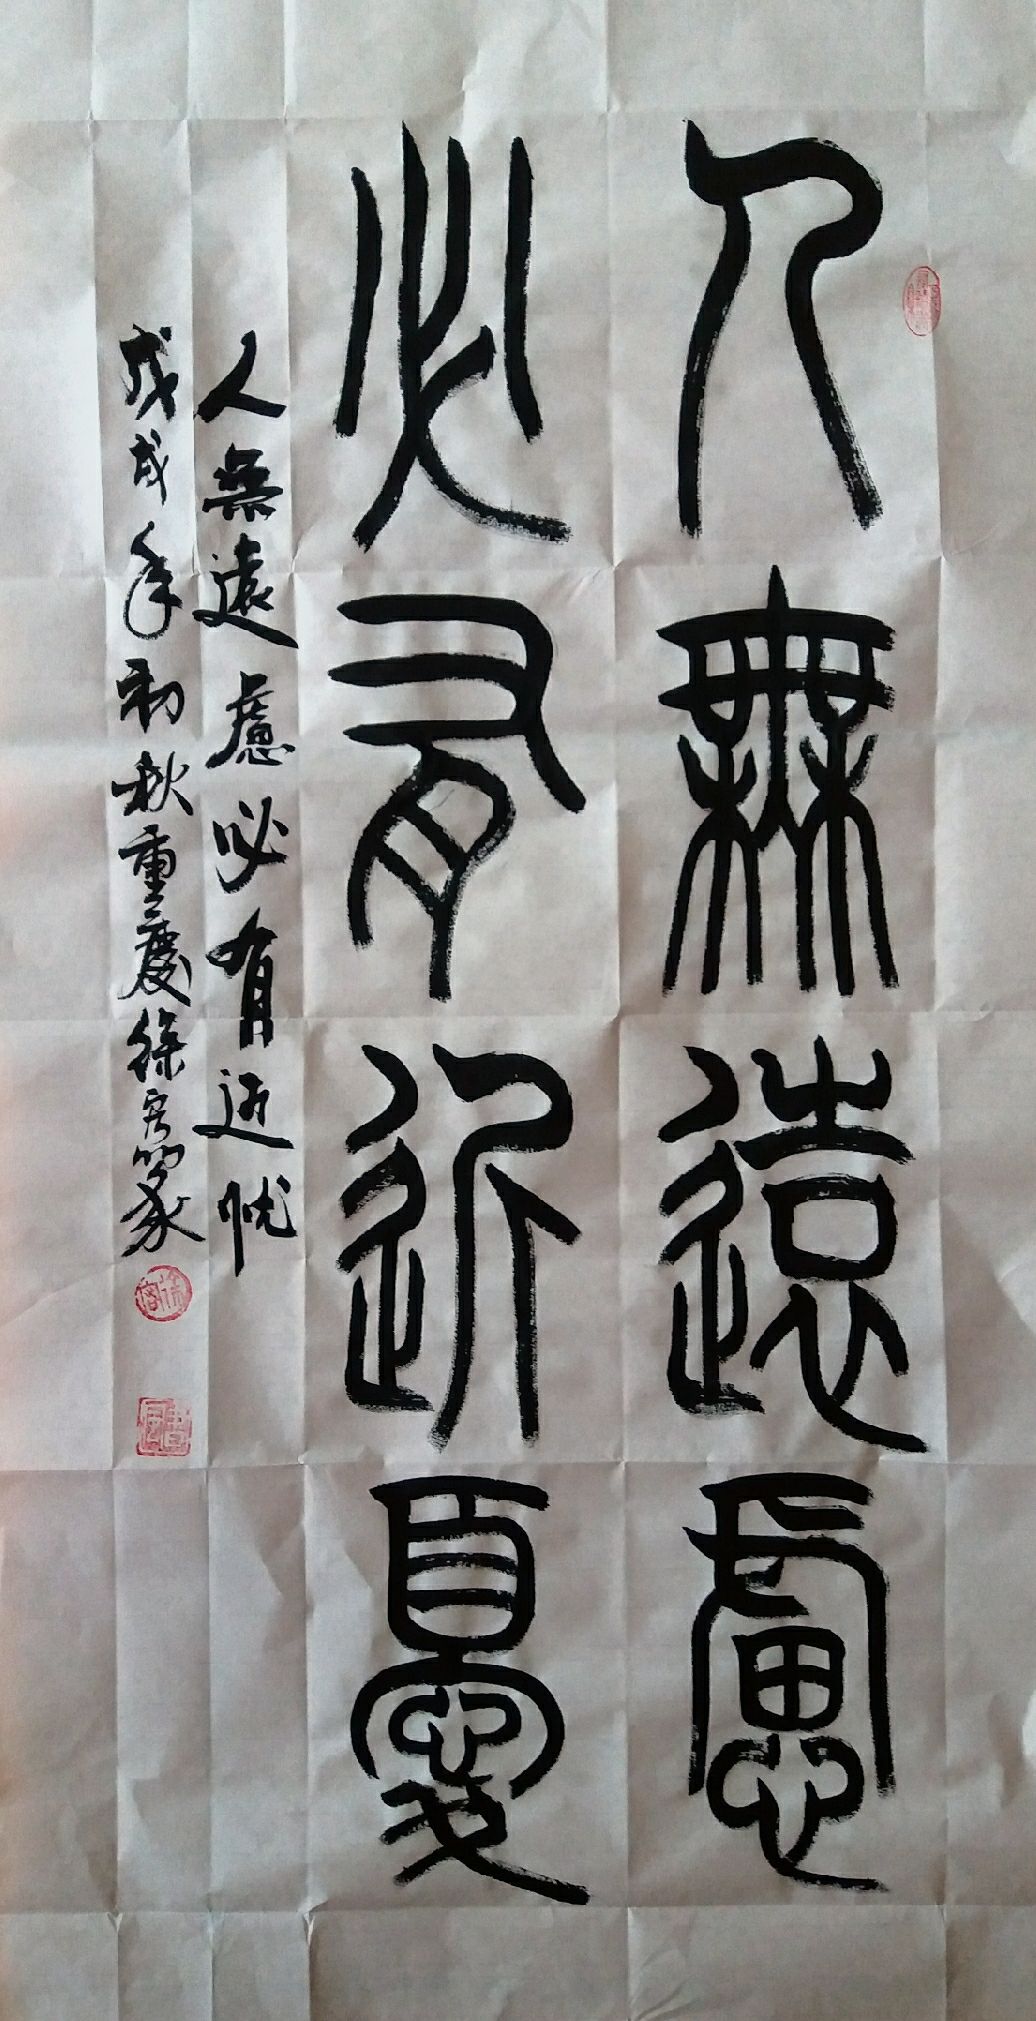 人無遠慮
必有近憂
人無遠慮必有近忧
戊戌年初秋重慶徐容篆
徐容